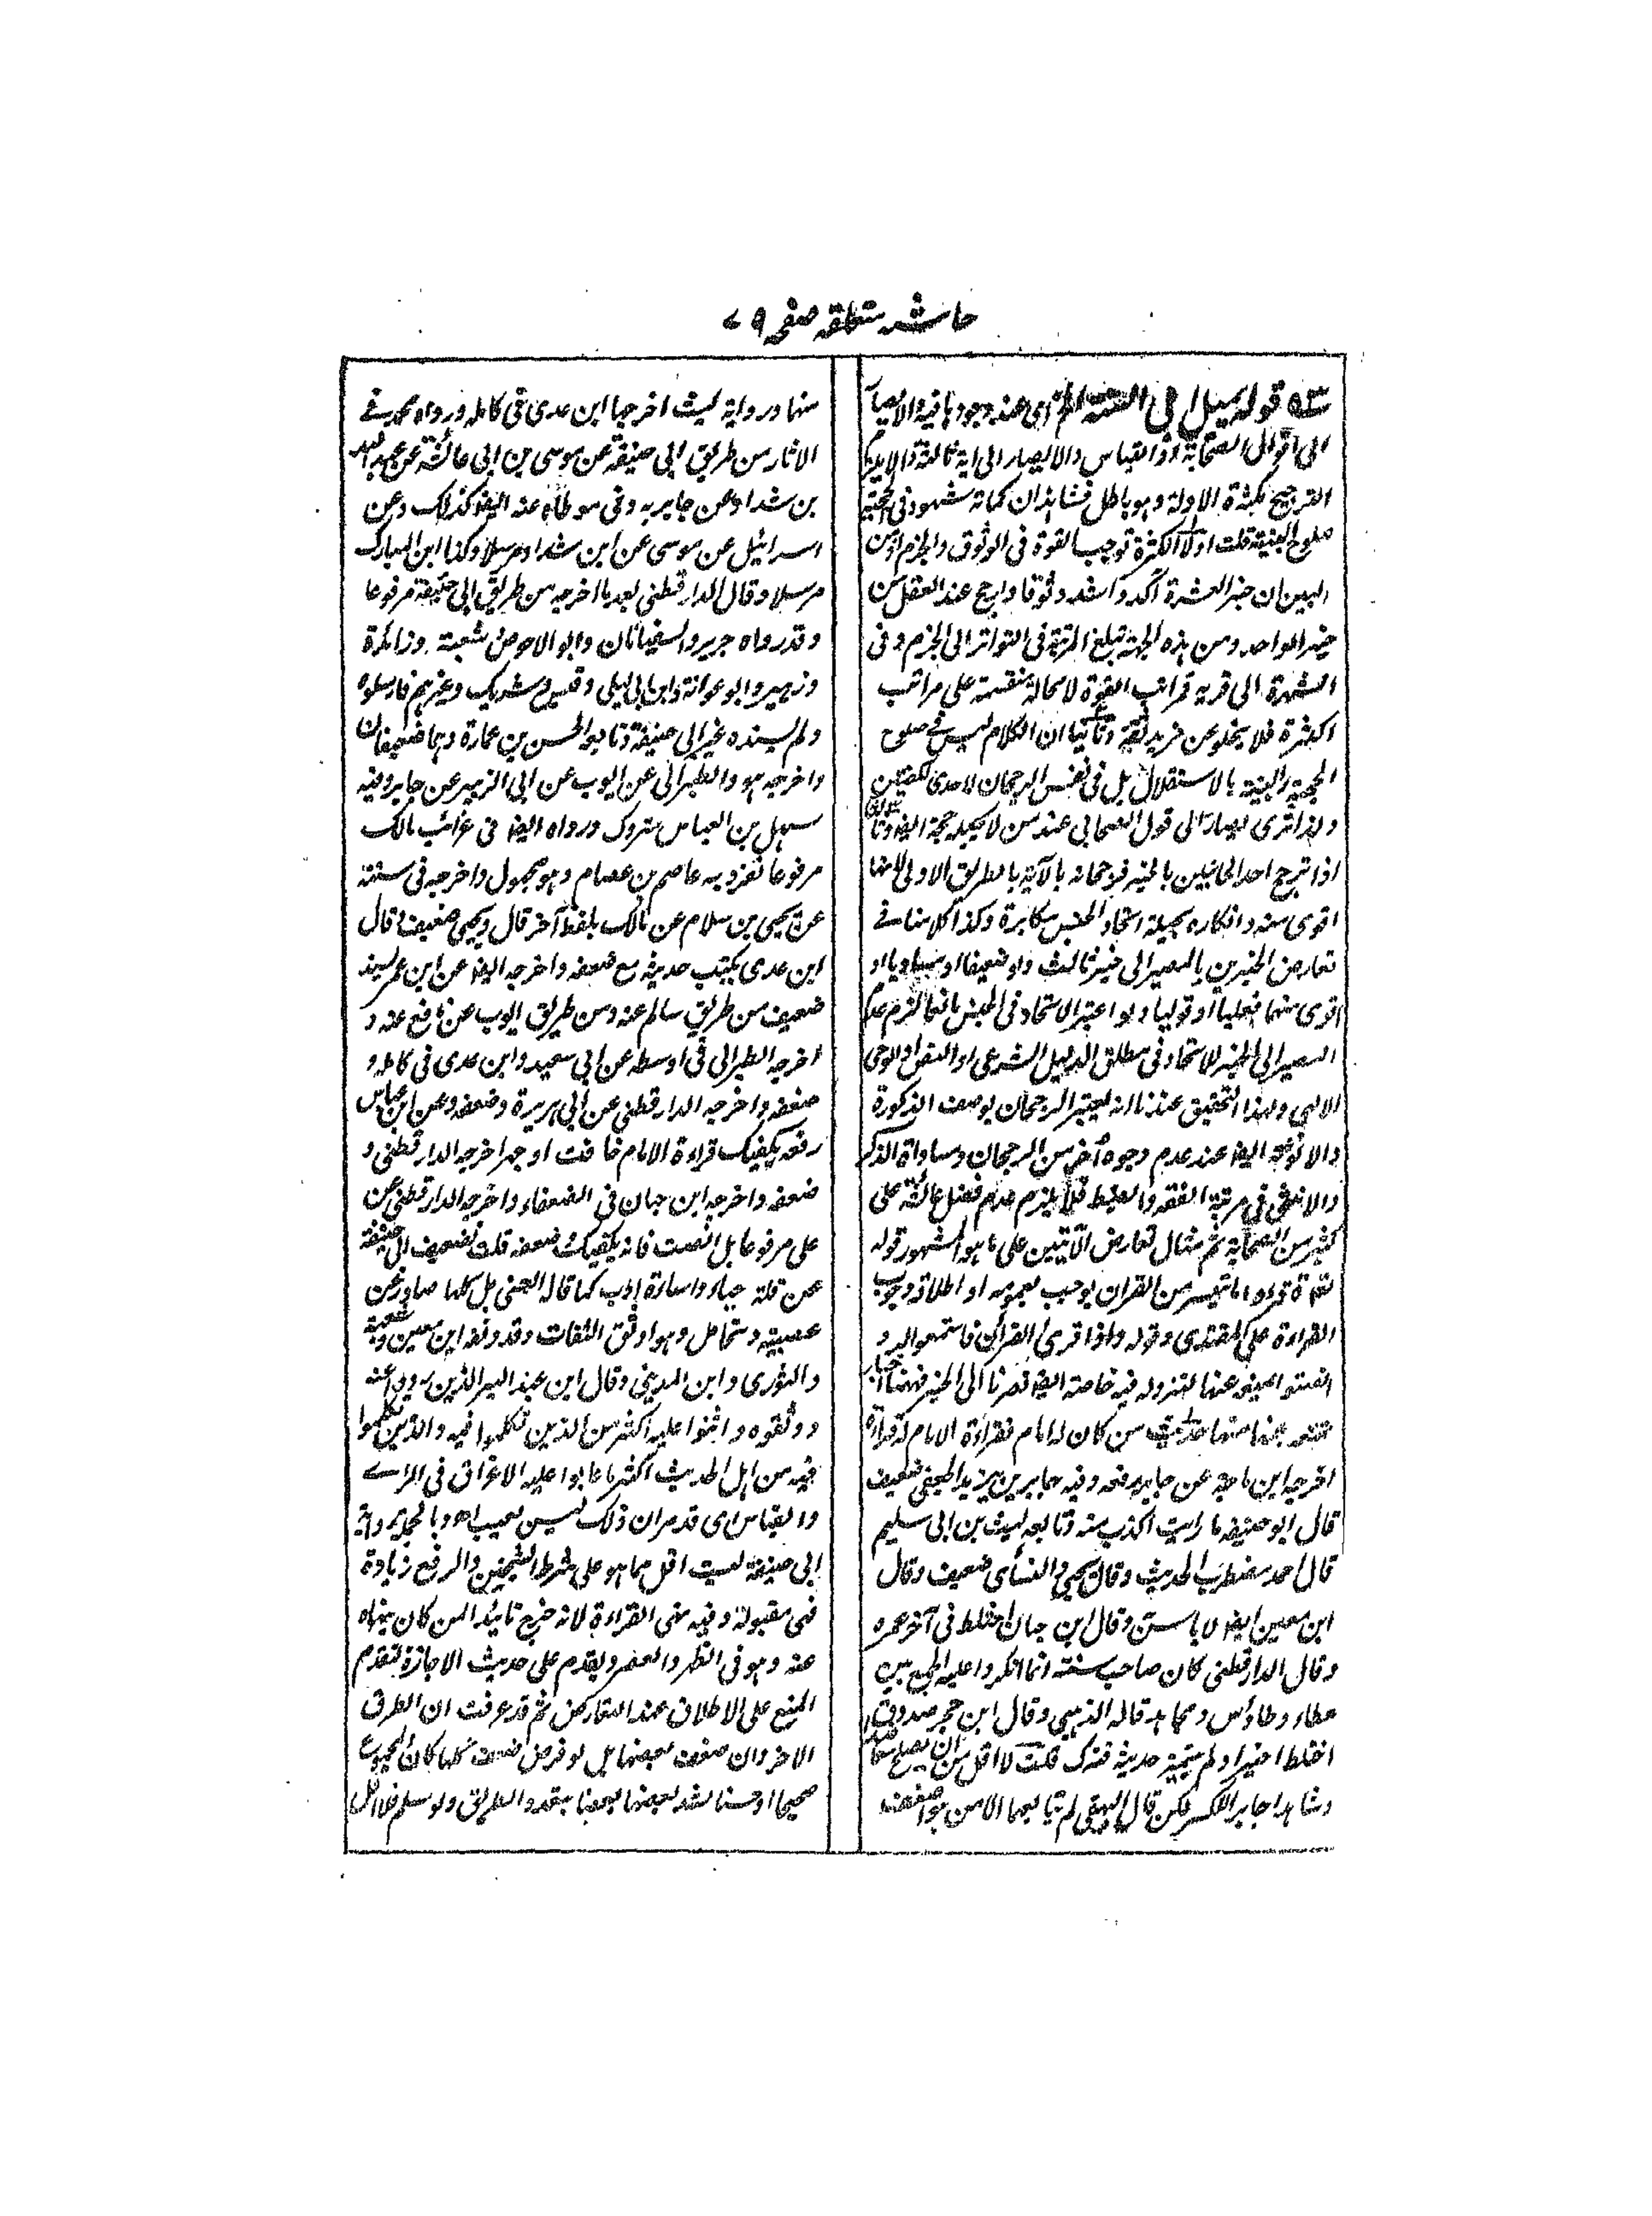 حاشیہ متعلقہ صفحہ ۷۹
قوله یمیل الی السنة الخ ای عند وجودها فیه والا یصار
الی اقوال الصحابة او القیاس ولا یصار الی اٰیة ثالثة والا یلزم
الترجیح بکثرة الادلة وهو باطل فشاهدان کمائة شهود فی
صلوح البینة قلت اولا الکثرة توجب القوة فی الوثوق والجزم او من
البین ان خبر العشرة آکد واشد وثوقا وارجح عند العقل من
خبر الواحد ومن هذه الجهة تبلغ المرتبة فی التواتر الی الجزم وفی
الشهرة الی قربه فمراتب القوة لا محالة منقسمة علی مراتب
الکثرة فلا یخلو عن مزید ثقة وثانیا ان الکلام لیس فی صلوح
الحجیة والبینة بالاستقلال بل فی نفس الرجحان لاحدی
ولذا تری یصار الی قول الصحابی عند من لا یجعله حجة ایضا وثالثا
اذا ترجح احد الجانبین بالخبر فرجحانه بالآیة بالطریق الاولی لانها
اقوی منه وانکاره بحیلة اتحاد الجنس مکابرة وکذا کلامنا فی
تعارض الخبرین یالمصیر الی خبر ثالث ولو ضعیفا او مساویا او
اقوی منهما فعلیا او قولیا ولو اعتبر الاتحاد فی الجنس مانعا لزم عدم
المصیر الی الخبر للاتحاد فی مطلق الدلیل الشرعی او النقل او الوحی
الالهی ولهذا التحقیق عندنا انه یعتبر الرجحان بوصف الذکورة
والانوثة ایضا عند عدم وجوه اُخر من الرجحان ومساواة الذکر
والانثی فی مرتبة الفقه والضبط فلا یلزم عدم فضل عائشة علی
کثیر من الصحابة ثم مثال تعارض الآیتین علی ما هو المشهور قوله
تعالی فاقرءوا ما تیسر من القران یوجب بعمومه او اطلاقه وجوب
القراءة علی المقتدی وقوله واذا قرئ القرآن فاستمعوا له و
انصتوا یمنعه عنها لنزوله فیه خاصة ایضا فصرنا الی الخبر فههنا اخبار
منع عنها منها حدیث من کان له امام فقراءة الامام له قراءة
اخرجه ابن ماجة عن جابر رفعه وفیه جابر بن یزید الجعفی ضعیف
قال ابو حنیفه ما رایت اکذب منه وتابعه لیث بن ابی سلیم
قال احمد مضطرب الحدیث وقال یحیی والنسائی ضعیف وقال
ابن معین ایضا لا باس به وقال ابن حبان اختلط فی آخر عمره
وقال الدارقطنی کان صاحب سنة انما انکروا علیه الجمع بین
عطاء وطاؤس ومجاهد قاله الذهبی وقال ابن حجر صدوق
اختلط اخیرا ولم یتمیز حدیثه فترک قلت لا اقل من ان یصلح متابعا
وشاهدا جابر الکسر لکن قال البیهقی لم یتابعهما الا من هو اضعف
منهما ورواية لیث اخرجها ابن عدی فی کامله ورواه محمد فی
الاثار من طریق ابی حنیفة عن موسی بن ابی عائشة عن عبد الله
بن شداد عن جابر به وفی موطاه عنه ایضا کذلک وعن
اسرائیل عن موسی عن ابن شداد مرسلا وکذا ابن المبارک
مرسلا وقال الدارقطنی بعد ما اخرجه من طریق ابی حنیفة مرفوعا
وقد رواه جریر والسفیانان وابو الاحوص شعبة وزائدة
وزهیر وابو عوانة وابن ابی لیلی وقیس وشریک وغیرهم فارسلوه
ولم یسنده غیر ابی حنیفة وتابعه الحسن بن عمارة وهما ضعیفان
واخرجه هو والطبرانی عن ایوب عن ابی الزبیر عن جابر وفیه
سهل بن العباس متروک ورواه ایضا فی غرائب مالک
مرفوعا تفرد به عاصم بن عصام وهو مجهول واخرجه فی سننه
عن یحیی بن سلام عن مالک بلفظ آخر قال ویحیی ضعیف قال
ابن عدی یکتب حدیثه مع ضعفه واخرجه ایضا عن ابن عمر بسند
ضعیف من طریق سالم عنه ومن طریق ایوب عن نافع عنه و
اخرجه الطبرانی فی اوسطه عن ابی سعید وابن عدی فی کامله و
ضعفه واخرجه الدارقطنی عن ابی هریرة وضعفه وعن ابن عباس
رفعه یکفیک قراءة الامام خافت او جهر اخرجه الدارقطنی و
ضعفه واخرجه ابن حبان فی الضعفاء واخرجه الدارقطنی عن
علی مرفوعا بل انصت فانه یکفیک ضعفه قلت تضعیف ابی حنیفة
عن قلة حیاء واساءة ادب کما قاله العینی بل کلها صادر عن
عصبیة وتحامل وهو اوثق الثقات وقد وثقه ابن معین وشعبة
والثوری وابن المدینی وقال ابن عبد البر الذین رووا عنه
ووثقوه واثنوا علیه اکثر من الذین تکلموا فیه والذین تکلموا
فیه من اهل الحدیث اکثر ما عابوا علیه الاغراق فی الرای
والقیاس ای قد مر ان ذلک لیس بعیب اه وبالجملة روایة
ابی حنیفة لیست اقل مما هو علی شرط الشیخین والرفع زیادة
فهی مقبولة وفیه نهی القراءة لانه خرج تائیدا لمن کان ینهاه
عنه وهو فی الظهر والعصر ویقدم علی حدیث الاجازة لتقدم
المنع علی الاطلاق عند التعارض ثم قد عرفت ان الطرق
الاخر وان ضعف بعضها بل لو فرض ضعف کلها کان المجموع
صحیحا او حسنا لشد بعضها بعضا بتعدد الطریق ولو سلم فلا اقل